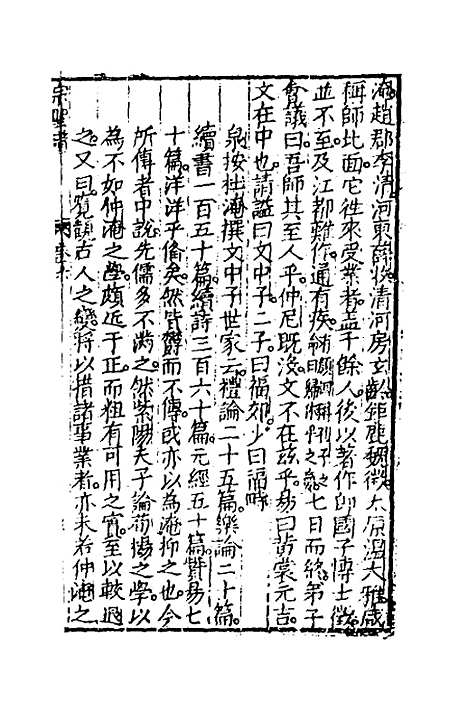 淹趙郡李靖河東薛收清河房玄齡鉅鹿魏徵太原溫大雅咸
稱師北面它往來受業者盖千餘人後以著作郎國子博士徵
並不至及江都難作通有疾 七日而終弟子
會議曰吾師其至人乎仲尼既沒文不在茲乎易曰黃裳元吉
文在中也請謚曰文中子二子曰福郊少曰福畤
泉按杜淹撰文中子世家云禮論二十五篇樂論二十篇
續書一百五十篇續詩三百六十篇元經五十篇贊易七
十篇洋洋乎偹矣然皆鬱而不傳或亦以為淹抑之也今
所傳者中說先儒多不滿之然紫陽夫子論荀揚之學以
為不如仲淹之學頗近于正而粗有可用之實至以較過
之又曰覽觀古人之變將以措諸事業者亦未若仲淹之
宗聖譜